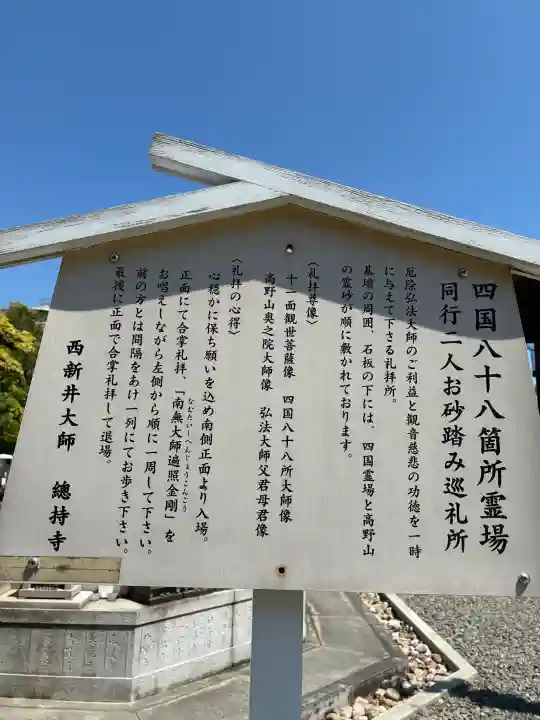 四国八十八箇所霊場
同行二人お砂踏み巡礼所
厄除弘法大師のご利益と観音慈悲の功徳を一時
に与えて下さる礼拝所。
基壇の周囲、石板の下には、四国霊場と高野山
の霊砂が順に敷かれております。
〈礼拝尊像〉
十一面観世音菩薩像 四国八十八所大師像
高野山奥之院大師像 弘法大師父君母君像
〈礼拝の心得〉
心穏かに保ち願いを込め南側正面より入場。
正面にて合掌礼拝、「南無大師遍照金剛」を
なむたいしーへんじょうこんごう
お唱えしながら左側から順に一周して下さい。
前の方とは間隔をあけ一列にてお歩き下さい。
最後に正面で合掌礼拝して退場。
西新井大師 總持寺